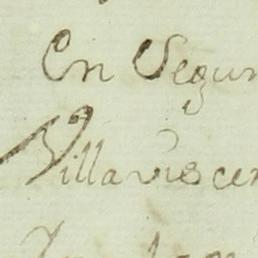 En Segun
Villaviscen